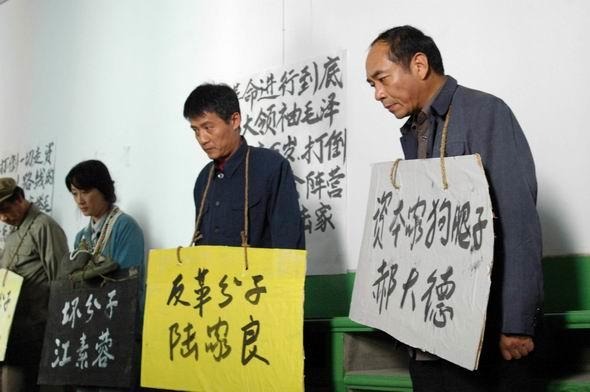 打倒一切走资
路线的
革命进行到底
大领袖毛泽
万岁.打倒
阵营
陆家
坏分子
江素蓉
反革分子
陆家良
资本家狗腿子
郝大德